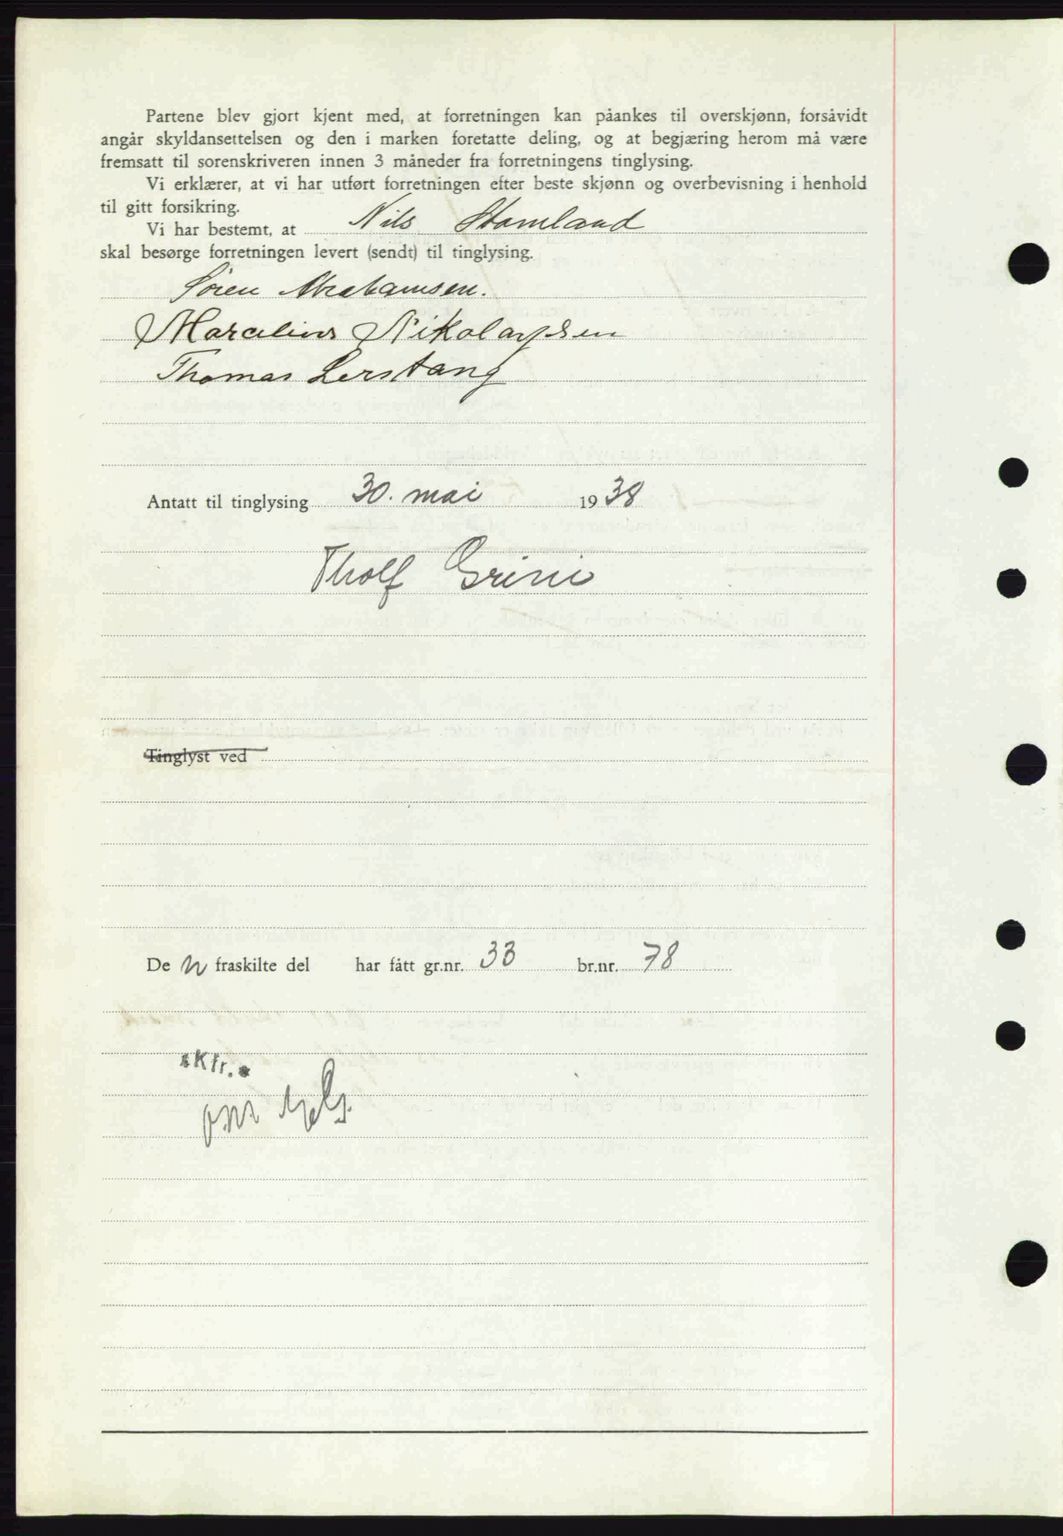 Partene blev gjort kjent med, at forretningen kan påankes til overskjønn, forsåvidt
angår skyldansettelsen og den i marken foretatte deling, og at begjæring herom må være
fremsatt til sorenskriveren innen 3 måneder fra forretningens tinglysing.
Vi erklærer, at vi har utført forretningen efter beste skjønn og overbevisning i henhold
til gitt forsikring.
Vi har bestemt, at Nils Stamland
skal besørge forretningen levert (sendt) til tinglysing.
Søren Abrahamsen.
Marcelius Nikolaysen
Thomas Lerstang
Antatt til tinglysing 30. mai 1938
Tholf Grini
Tinglyst ved
De n fraskilte del har fått gr.nr. 33 br.nr. 78
Kfr.